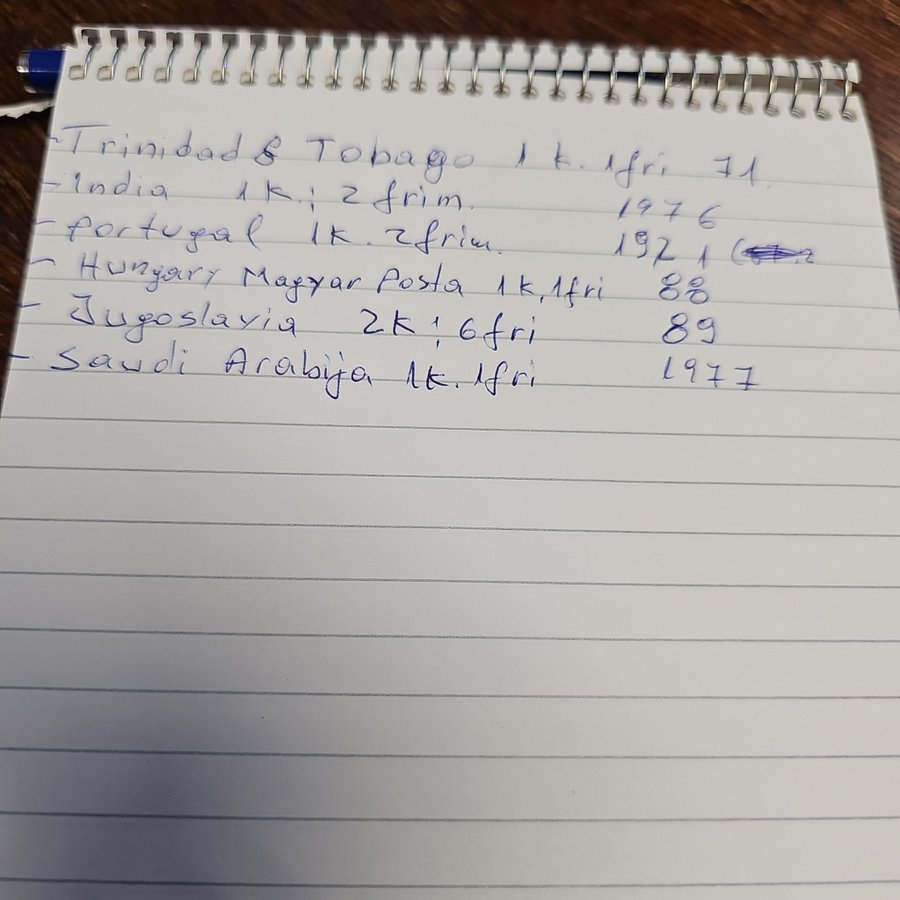 - Trinidad & Tobago 1 k. 1fri 71.
- India 1K.; 2 frim. 1976
- Portugal 1K. 2frim. 1921
- Hungary Magyar Posta 1K, 1fri 88
- Jugoslavia 2K; 6 fri 89
- Saudi Arabija 1k. 1fri 1977